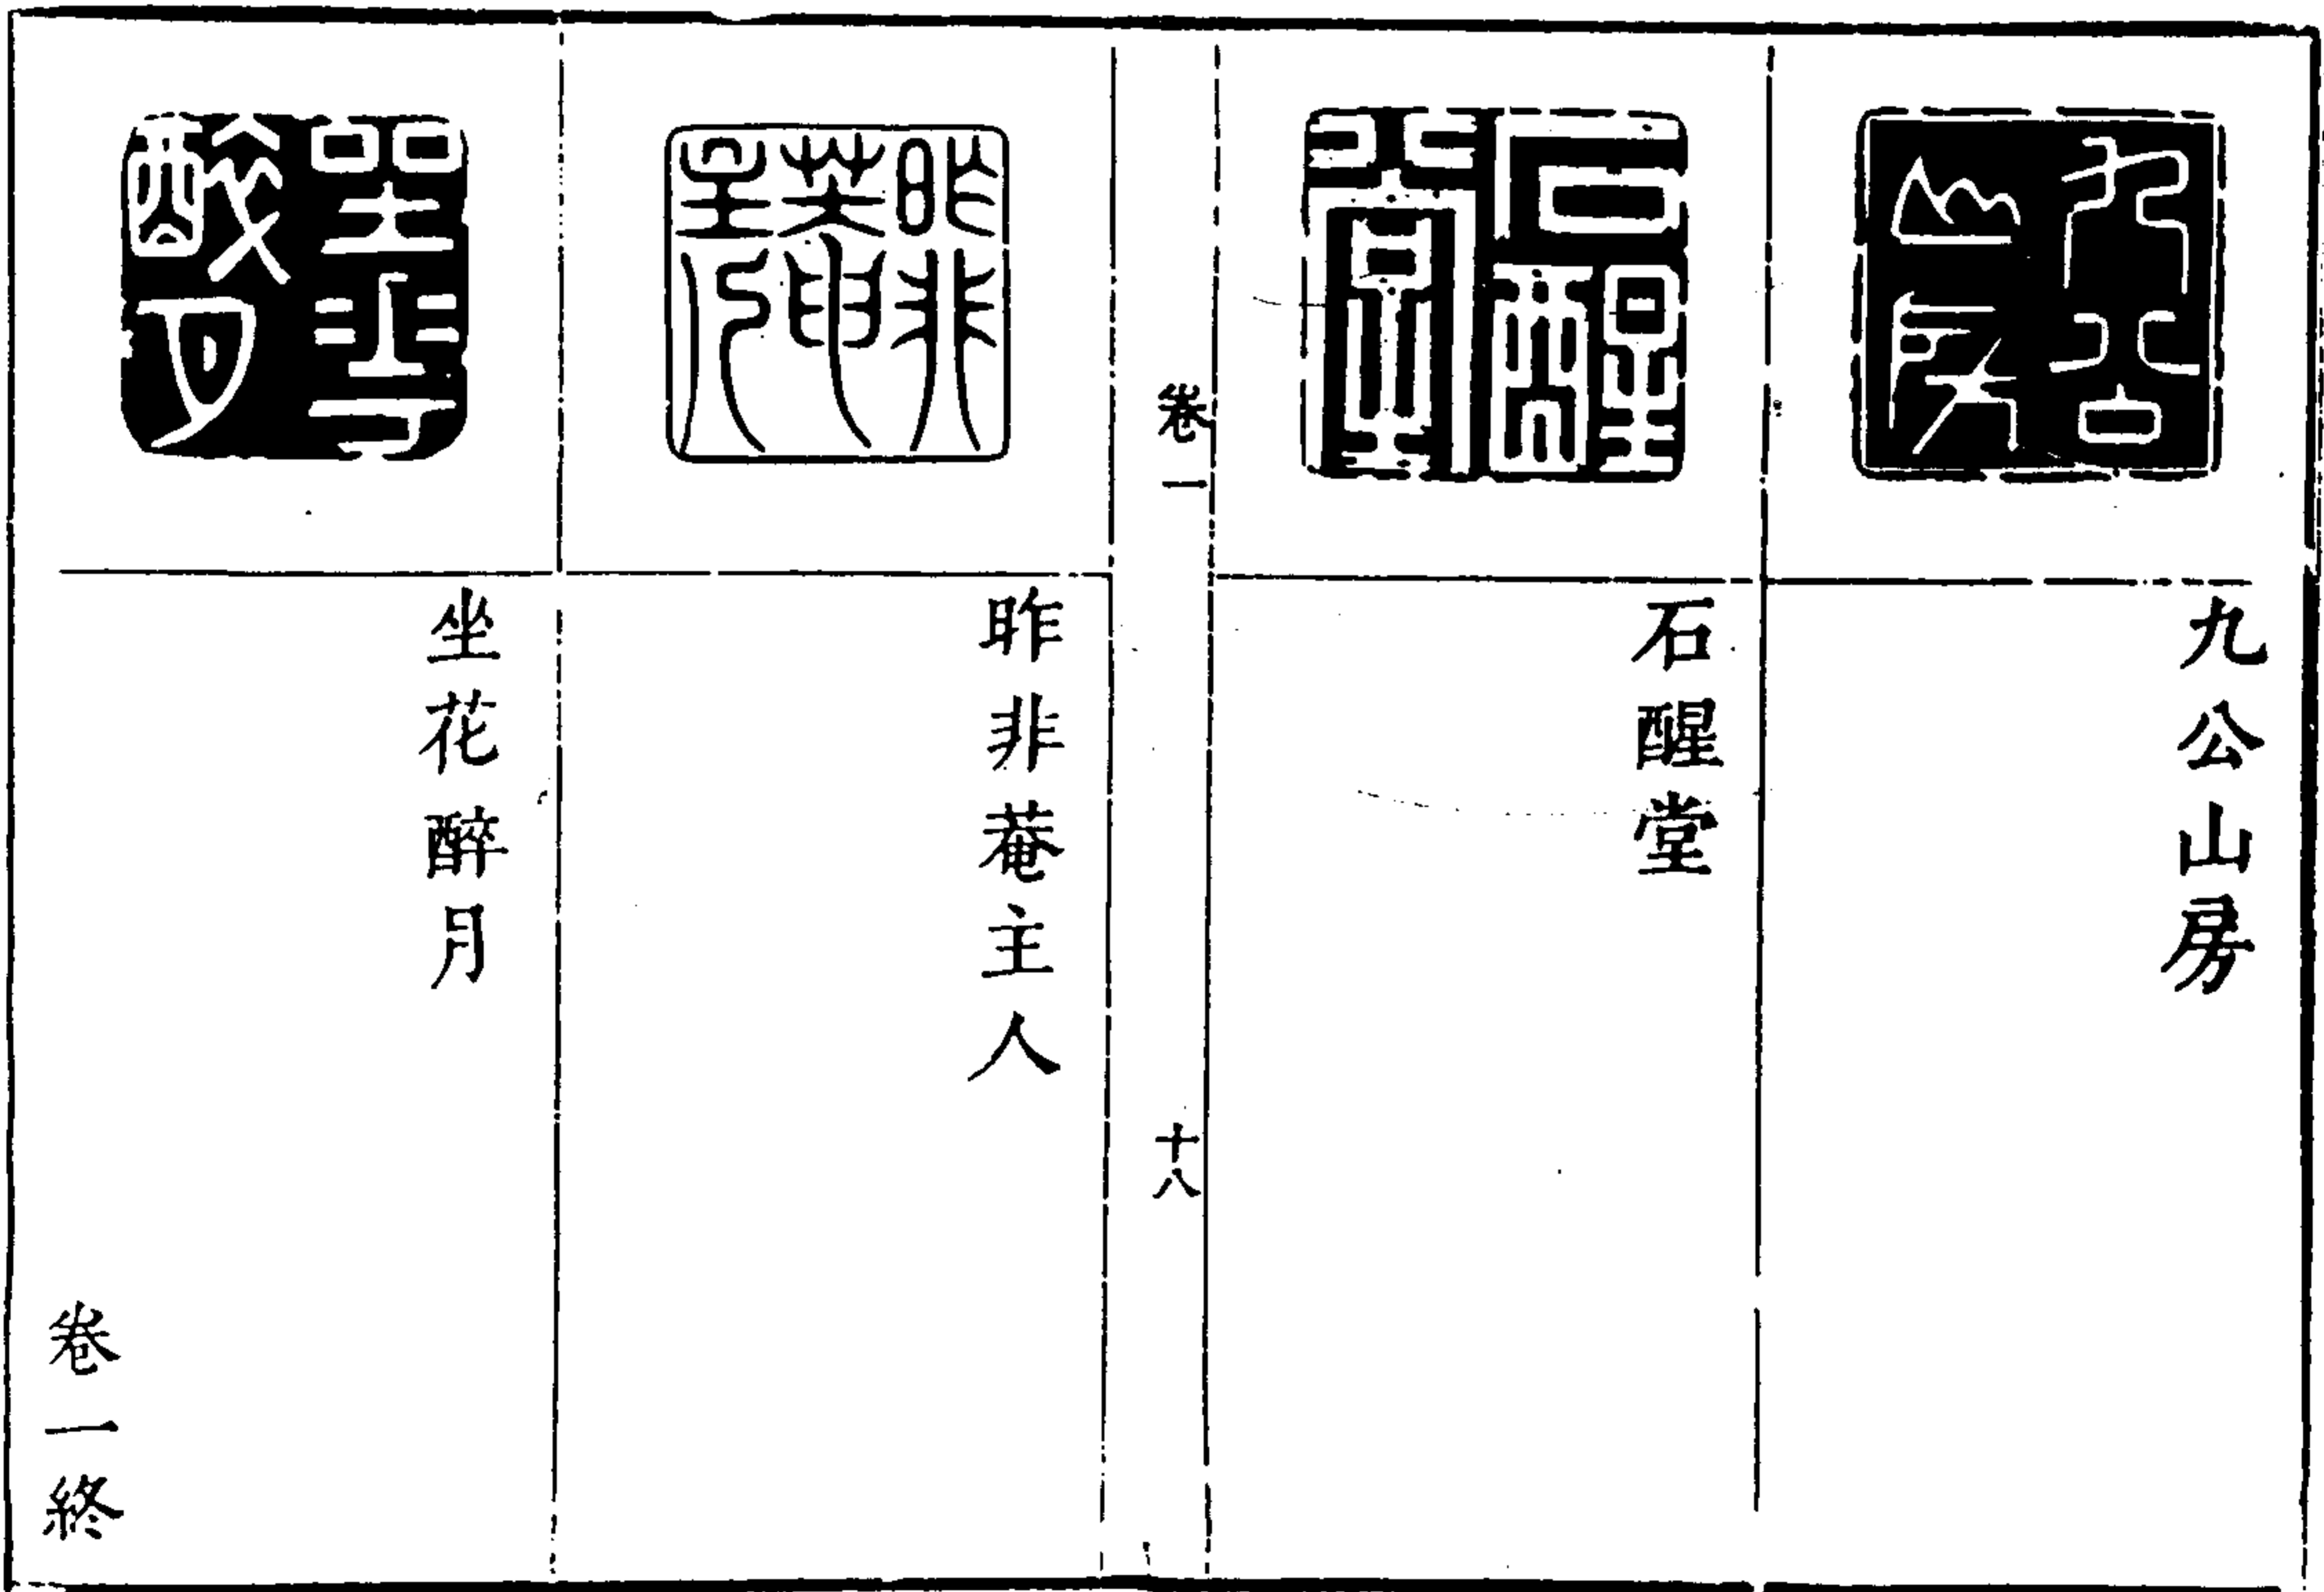 九公山房
石醒堂
卷一
十八
昨非菴主人
坐花醉月
卷一終